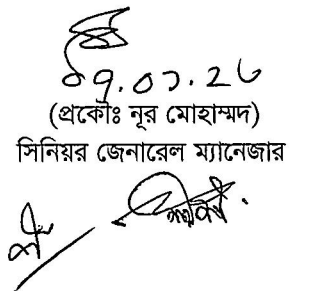 ০৭.০১.২৬
(প্রকৌঃ নূর মোহাম্মদ)
সিনিয়র জেনারেল ম্যানেজার